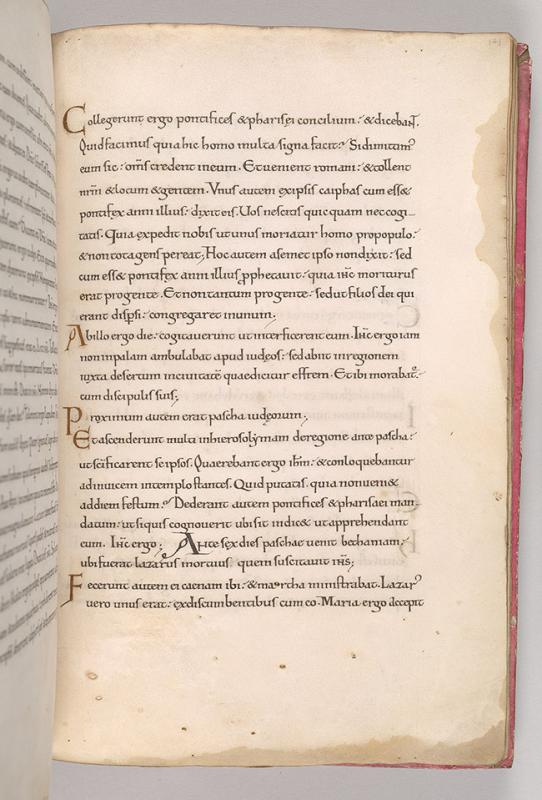 Collegerunt ergo pontifices & pharisęi concilium. & dicebant.
Quid facimus quia hic homo multa signa facit? Si dimittimus
eum sic. om̄s credent in eum. Et uenient romani. & tollent
nrm̄ & locum & gentem. Vnus autem ex ipsis caiphas cum ess&
pontifex anni illius. dixit eis. Uos nescitis quicquam nec cogi
tatis. Quia expedit nobis ut unus moriatur homo pro populo.
& non tota gens pereat; Hoc autem a semet ipso non dixit. sed
cum ess& pontifex anni illius ꝓphetauit. quia ihc̄ moriturus
erat pro gente. Et non tantum pro gente. sed ut filios dei qui
erant disꝑsi. congregaret in unum;
Ab illo ergo die. cogitauerunt ut interficerent eum. Ihc̄ ergo iam
non in palam ambulabat apud iudęos. sed abiit in regionem
iuxta desertum in ciuitatē quae dicitur effrem. Et ibi morabatur
cum discipulis suis;
Proximum autem erat pascha iudęorum;
Et ascenderunt multi in hierosolymam de regione ante pascha.
ut sc̄ificarent se ipsos. Quaerebant ergo ih̄m. & conloquebantur
ad inuicem in templo stantes. Quid putatis. quia non ueni&
ad diem festum? Dederant autem pontifices & pharisaei man
datum. ut si quis cognouerit ubi sit indic& ut apprehendant
eum. Ihc̄ ergo; Ante sex dies paschae uenit bethaniam.
ubi fuerat lazarus mortuus. quem suscitauit ihs̄;
Fecerunt autem ei caenam ibi. & martha ministrabat. Lazarus
uero unus erat. ex discumbentibus cum eo. Maria ergo accepit